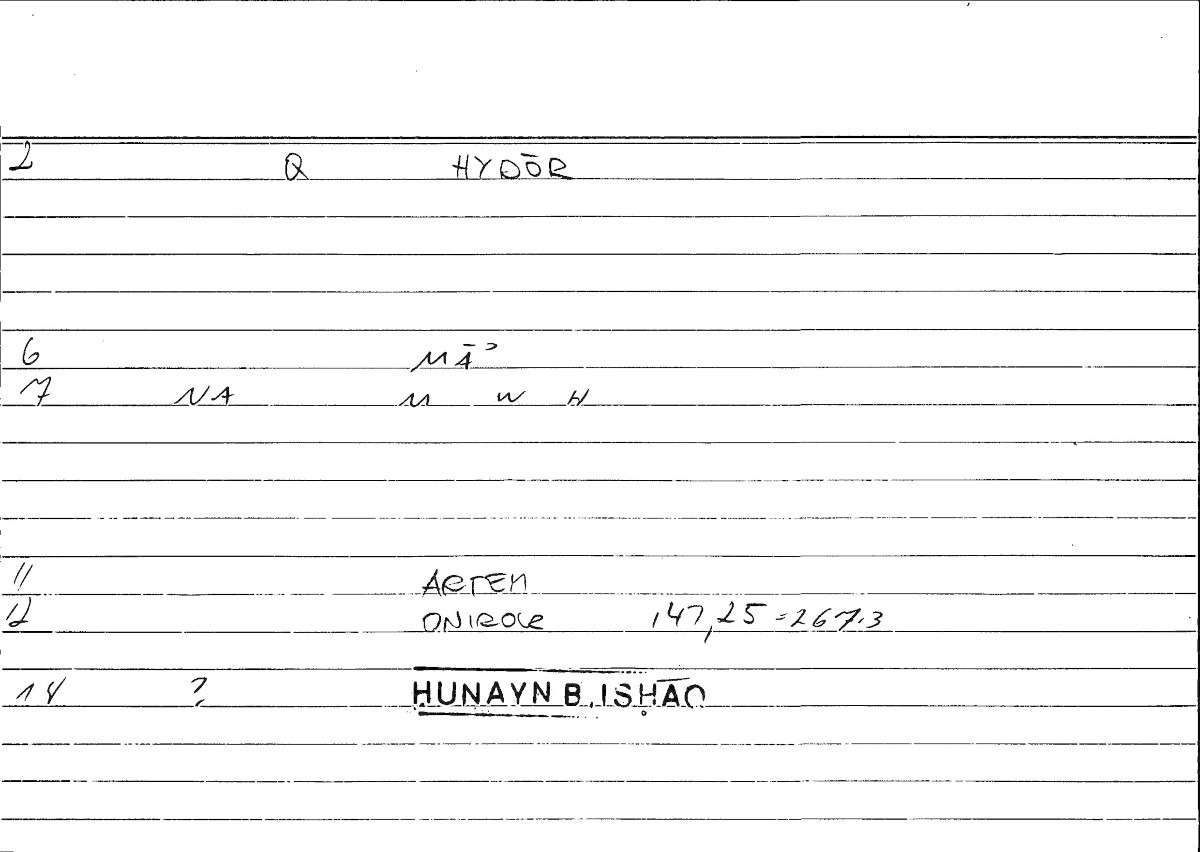 2 Q HYDŌR
6 MĀʾ
7 NA M W H
11 ARTEM
12 ONIROCR 147,25 = 267.3
14 ? ḤUNAYN B. ISḤĀQ